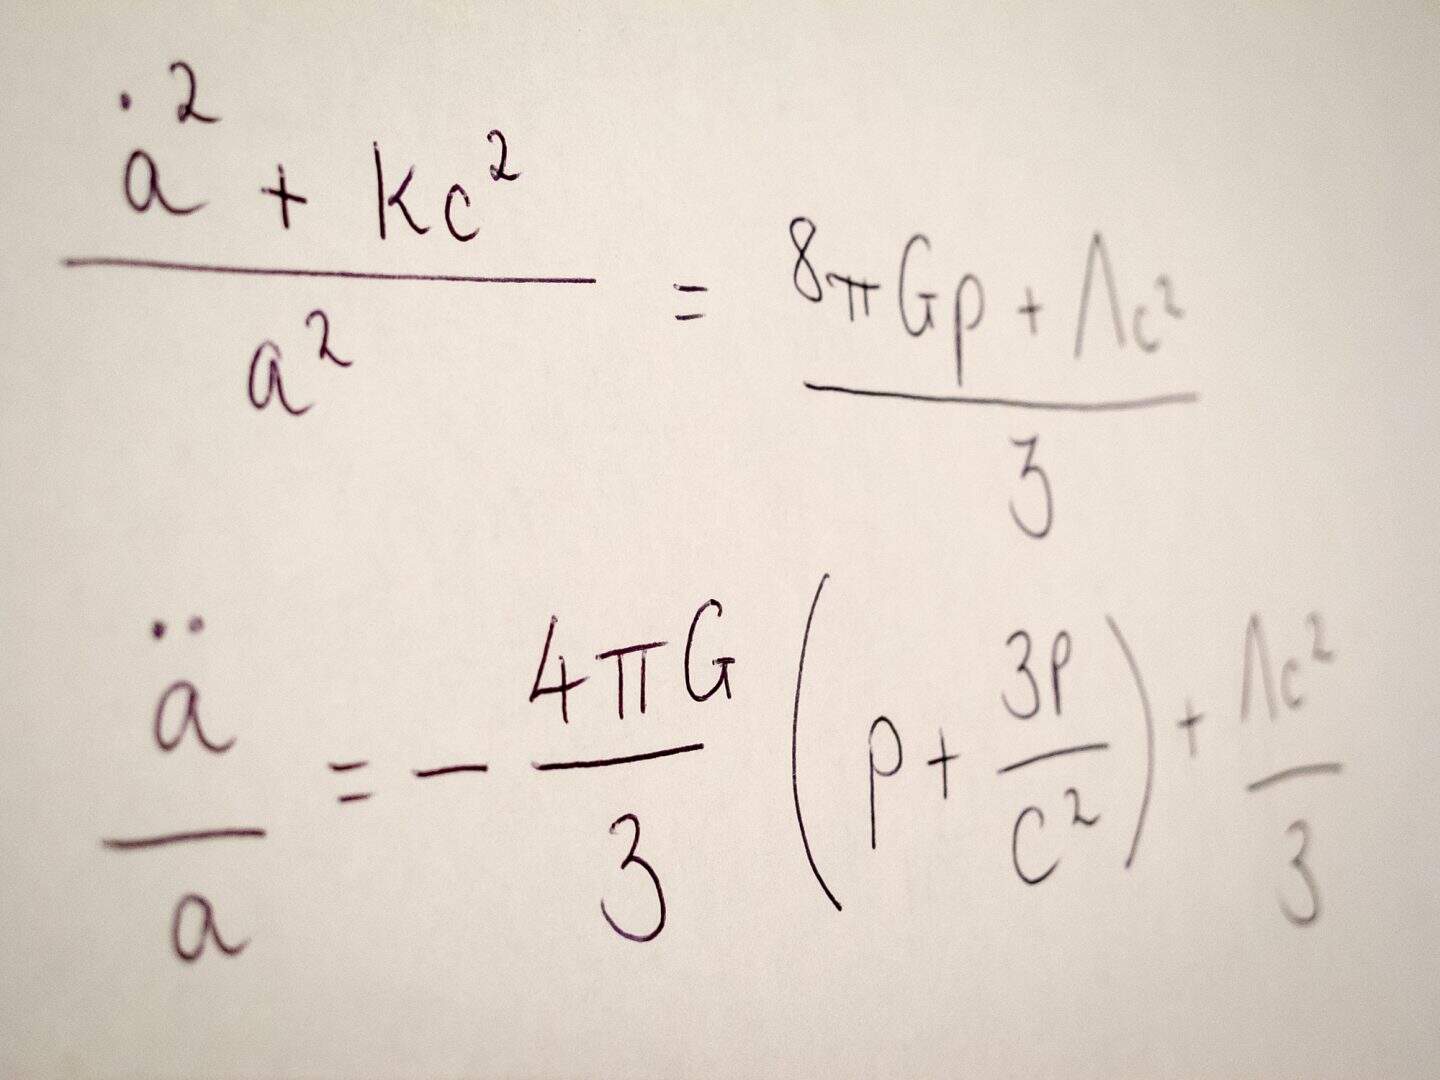 (ȧ² + kc²) / a² = (8πGρ + Λc²) / 3
ä / a = − (4πG / 3) (ρ + 3p / c²) + Λc² / 3